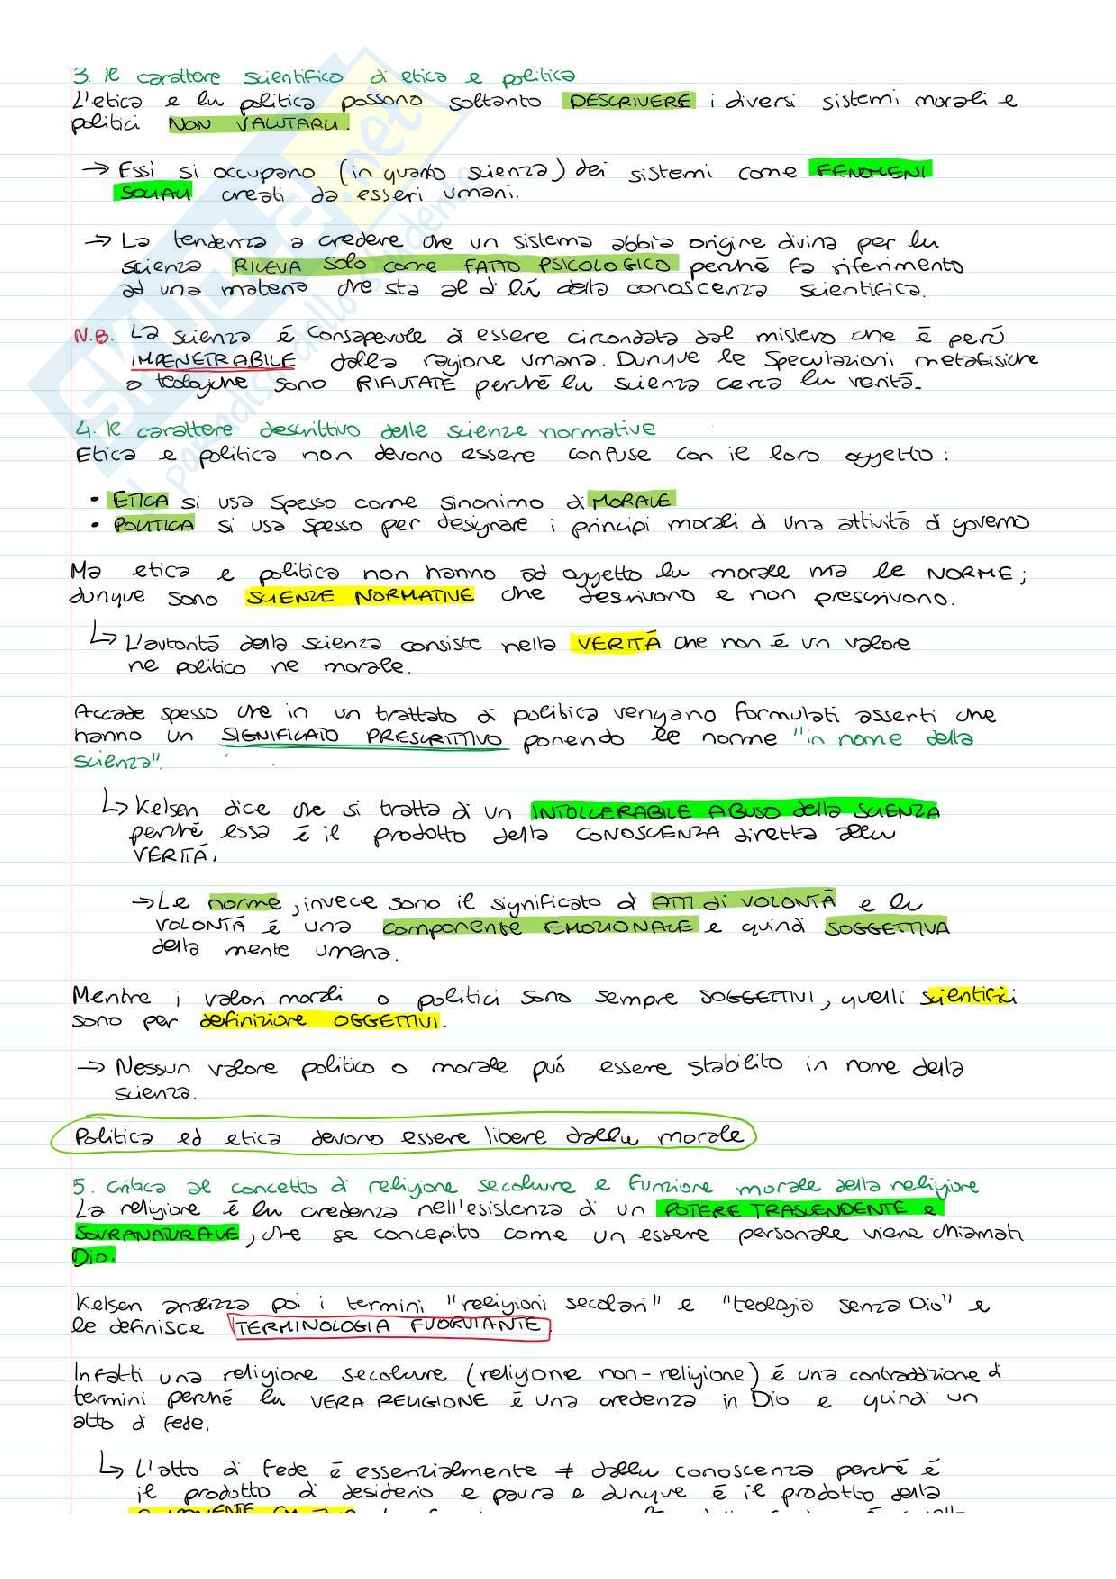 3. Il carattere scientifico di etica e politica
L'etica e la politica possono soltanto DESCRIVERE i diversi sistemi morali e
politici NON VALUTARLI.
→ Essi si occupano (in quanto scienza) dei sistemi come FENOMENI
SOCIALI creati da esseri umani.
→ La tendenza a credere che un sistema abbia origine divina per la
scienza RILEVA solo come FATTO PSICOLOGICO perché fa riferimento
ad una materia che sta al di lá della conoscenza scientifica.
N.B. La scienza é consapevole di essere circondata dal mistero che é peró
IMPENETRABILE dalla ragione umana. Dunque le speculazioni metafisiche
o teologiche sono RIFIUTATE perché la scienza cerca la veritá.
4. Il carattere descrittivo delle scienze normative
Etica e politica non devono essere confuse con il loro oggetto:
• ETICA si usa spesso come sinonimo di MORALE
• POLITICA si usa spesso per designare i principi morali di una attivitá di governo
Ma etica e politica non hanno ad oggetto la morale ma le NORME;
dunque sono SCIENZE NORMATIVE che descrivono e non prescrivono.
↳ L'autoritá della scienza consiste nella VERITÁ che non é un valore
ne politico ne morale.
Accade spesso che in un trattato di politica vengano formulati asserti che
hanno un SIGNIFICATO PRESCRITTIVO ponendo le norme "in nome della
scienza".
↳ Kelsen dice che si tratta di un INTOLLERABILE ABUSO della SCIENZA
perché essa é il prodotto della CONOSCENZA diretta alla
VERITÁ.
→ Le norme, invece sono il significato di ATTI di VOLONTÁ e la
VOLONTÁ é una componente EMOZIONALE e quindi SOGGETTIVA
della mente umana.
Mentre i valori morali o politici sono sempre SOGGETTIVI, quelli scientifici
sono per definizione OGGETTIVI.
→ Nessun valore politico o morale puó essere stabilito in nome della
scienza.
Politica ed etica devono essere libere dalla morale
5. Critica al concetto di religione secolare e funzione morale della religione
La religione é la credenza nell'esistenza di un POTERE TRASCENDENTE e
SOVRANATURALE, che se concepito come un essere personale viene chiamato
Dio.
Kelsen analizza poi i termini "religioni secolari" e "teologia senza Dio" e
le definisce TERMINOLOGIA FUORVIANTE.
Infatti una religione secolare (religione non-religione) é una contraddizione di
termini perché la VERA RELIGIONE é una credenza in Dio e quindi un
atto di fede.
↳ L'atto di fede é essenzialmente ≠ dalla conoscenza perché é
il prodotto di desiderio e paura e dunque é il prodotto della